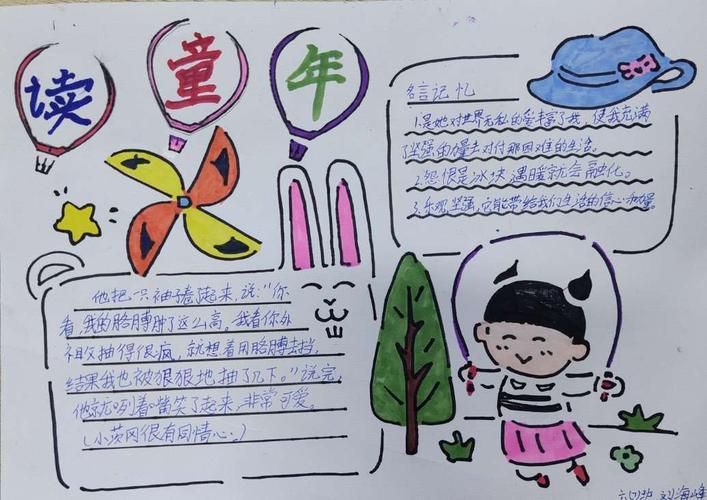 读童年
名言记忆
1.是她对世界无私的爱丰富了我，使我充满
了坚强的力量去对付那困难的生活。
2.怨恨是冰块，遇暖就会融化。
3.乐观，坚强，它能带给我们生活的信心和力量。
他把一只袖子卷起来，说："你
看，我的胳膊肿了这么高。我看你外
祖父抽得很疯，就想着用胳膊去挡，
结果我也被狠狠地抽了几下。"说完，
他就咧着嘴笑了起来，非常可爱。
(小茨冈很有同情心。)
刘海峰